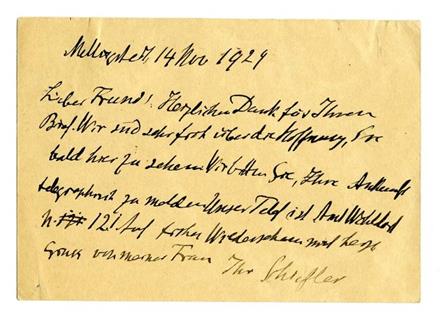 14 Nov 1929
Lieber Freund! Herzlichen Dank für Ihren
Brief. Wir sind sehr froh über die Hoffnung, Sie
bald hier zu sehen. Wir bitten Sie, Ihre Ankunft
telegraphisch zu melden. Unser Telef ist Amt
N 12. Auf frohes Wiedersehen mit herzl
Gruss von meiner Frau Ihr